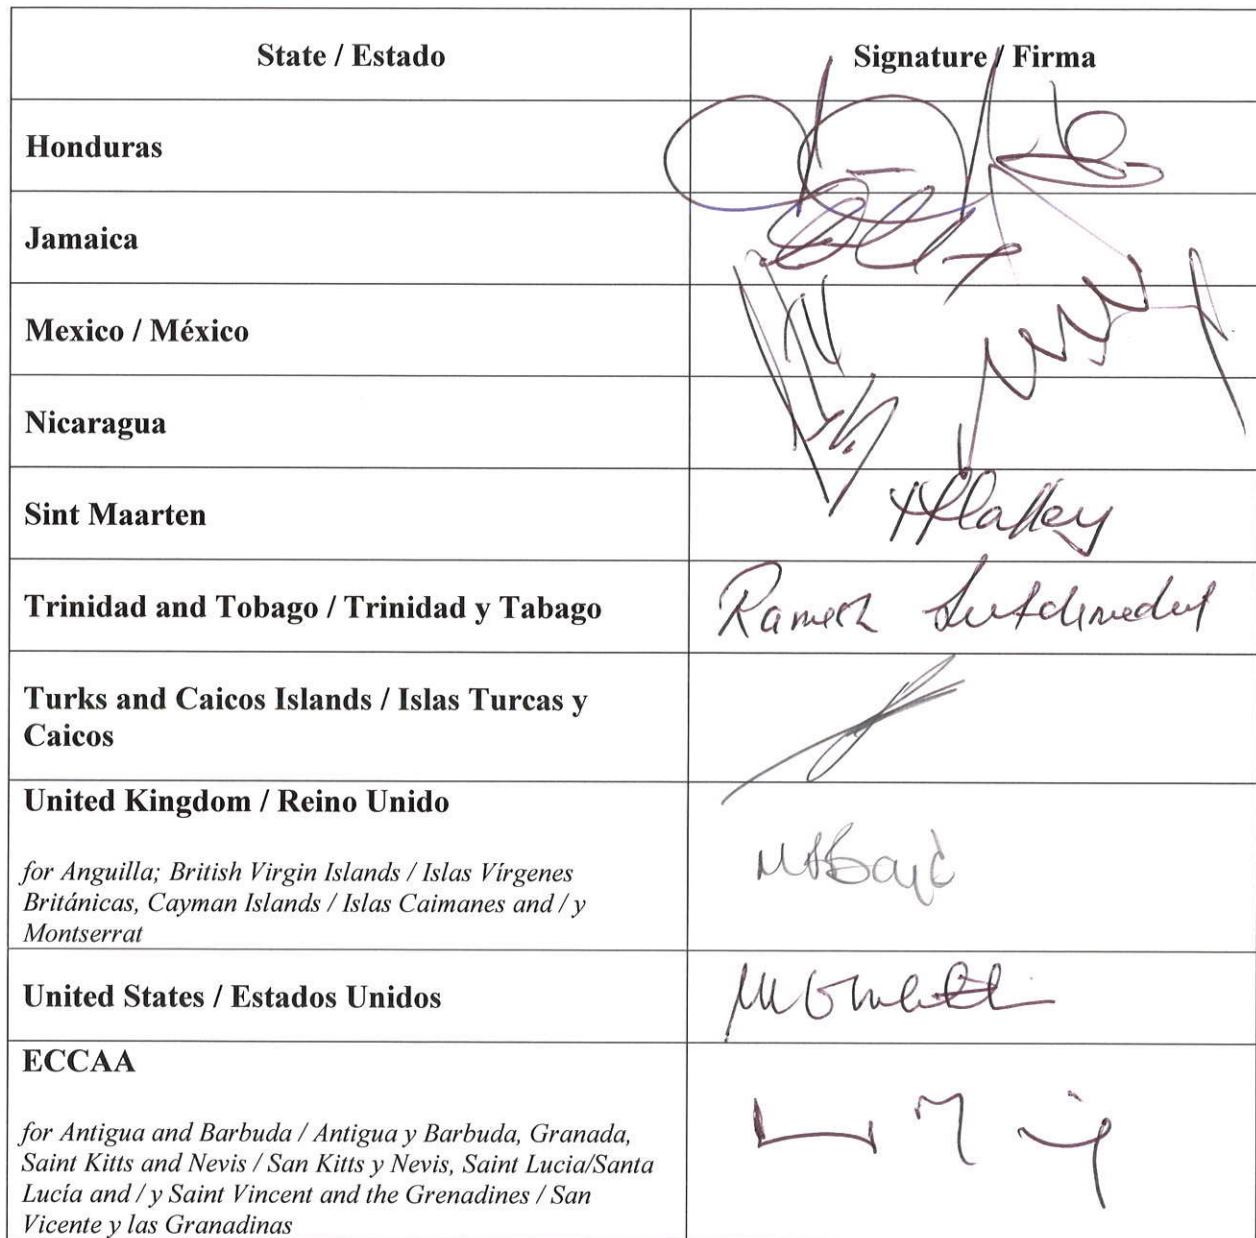 State / Estado
Signature / Firma
Honduras
Jamaica
Mexico / México
Nicaragua
Sint Maarten
Trinidad and Tobago / Trinidad y Tabago
Ramesh
Turks and Caicos Islands / Islas Turcas y
Caicos
United Kingdom / Reino Unido
for Anguilla; British Virgin Islands / Islas Vírgenes
Británicas, Cayman Islands / Islas Caimanes and / y
Montserrat
United States / Estados Unidos
ECCAA
for Antigua and Barbuda / Antigua y Barbuda, Granada,
Saint Kitts and Nevis / San Kitts y Nevis, Saint Lucia/Santa
Lucía and / y Saint Vincent and the Grenadines / San
Vicente y las Granadinas